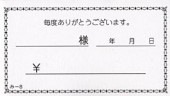 毎度ありがとうございます。
様 年 月 日
¥
みー8